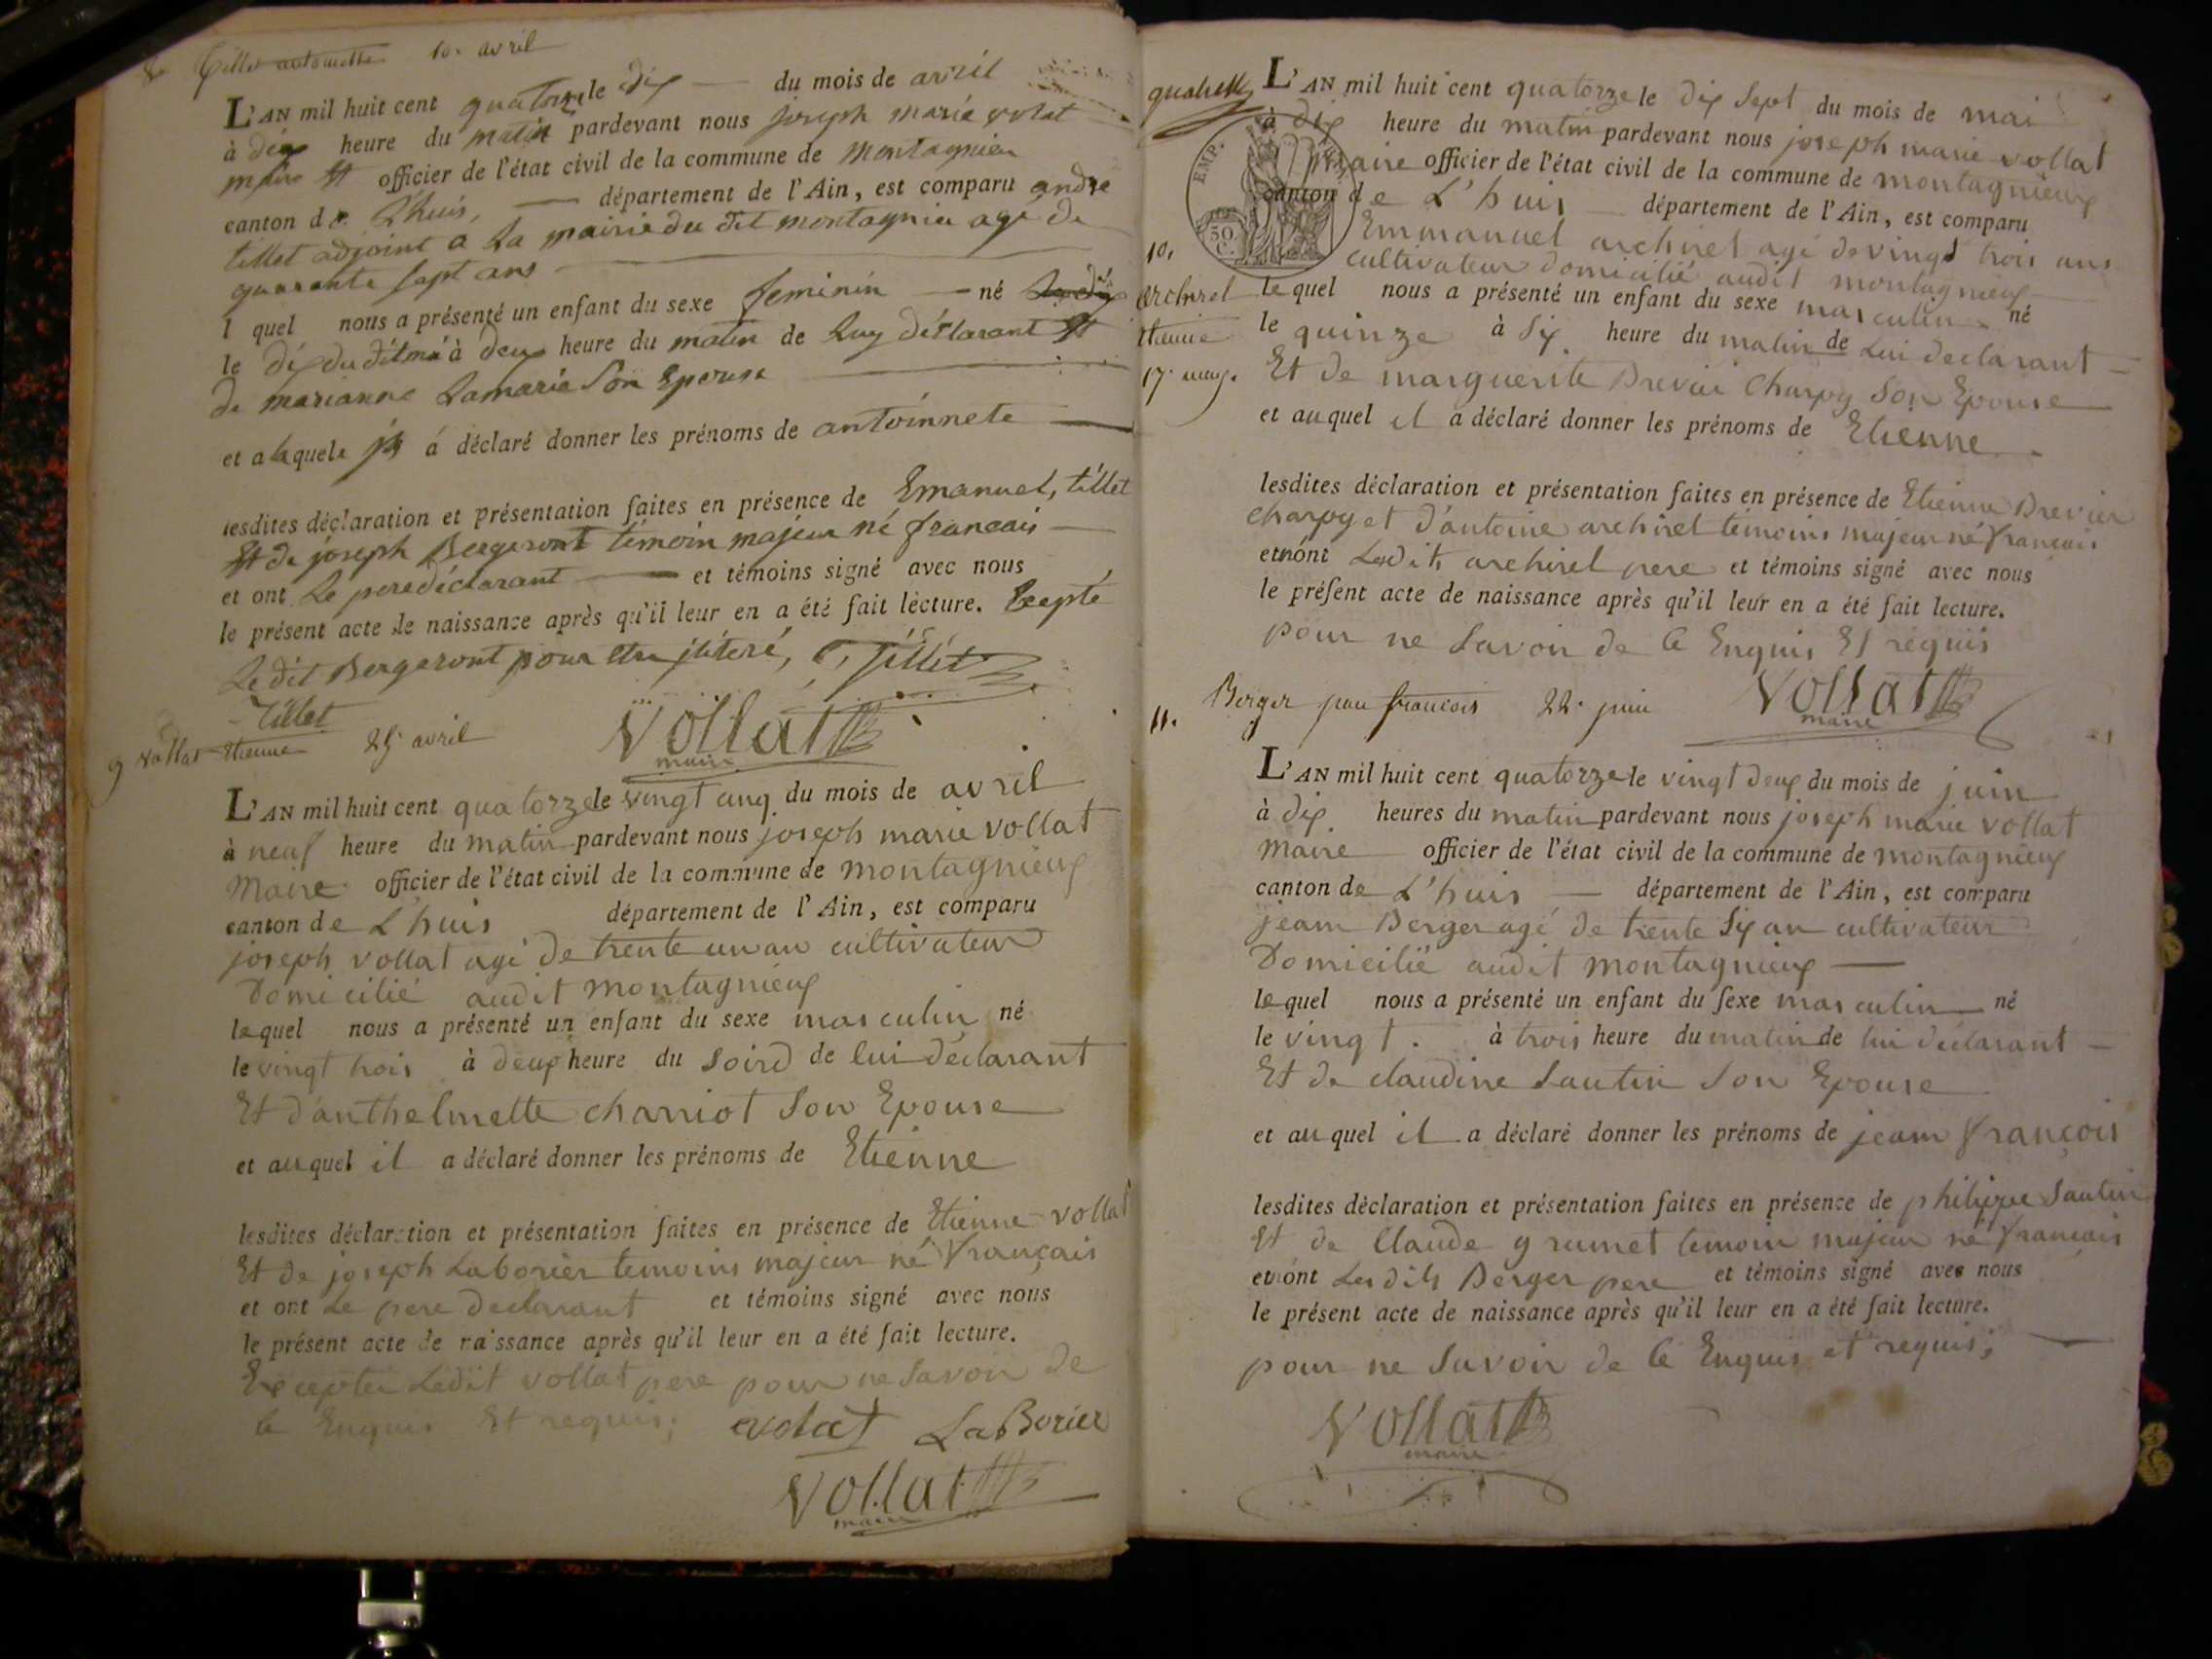 8 Tillet antoinette 10. avril
L'AN mil huit cent quatorze le dix du mois de avril
à dix heure du matin pardevant nous joseph marie volat
maire et officier de l'état civil de la commune de montagnieu
canton de L'huis, département de l'Ain, est comparu andré
tillet adjoint a La mairie du dit montagnieu agé de
quarante sept ans
l quel nous a présenté un enfant du sexe feminin né
le dix du dit moi à deux heure du matin de Luy déclarant Et
de marianne Lamarie Son Epouse
et a laquele il á déclaré donner les prénoms de antoinnete
lesdites déclaration et présentation faites en présence de Emanuel, tillet
Et de joseph Bergeront témoin majeur né francais
et ont Le pere déclarant et témoins signé avec nous
le présent acte de naissance après qu'il leur en a été fait lecture. Excepté
Le dit Bergeront pour être illiteré, Tillet
Tillet
Vollat
maire
9 vollat Etienne 25. avril
L'AN mil huit cent quatorze le vingt cinq du mois de avril
à neuf heure du matin pardevant nous joseph marie vollat
Maire officier de l'état civil de la commune de montagnieux
canton de L'huis département de l'Ain, est comparu
joseph vollat agé de trente un an cultivateur
Domicilié audit montagnieux
lequel nous a présenté un enfant du sexe masculin né
le vingt trois à deux heure du soird de lui déclarant
Et d'anthelmette charriot Son Epouse
et auquel il a déclaré donner les prénoms de Etienne
lesdites déclaration et présentation faites en présence de Etienne vollat
Et de joseph Laborier temoins majeur né français
et ont Le pere declarant et témoins signé avec nous
le présent acte de naissance après qu'il leur en a été fait lecture.
Excepter Ledit vollat pere pour ne Savoir de
ce Enquis Et requis; volat LaBorier
Vollat
maire
L'AN mil huit cent quatorze le dix Sept du mois de mai
à dix heure du matin pardevant nous joseph marie vollat
Maire officier de l'état civil de la commune de montagnieux
canton de L'huis département de l'Ain, est comparu
EMP.
50 C.
Emmanuel archirel agé de vingt trois ans
cultivateur domicilié audit montagnieux
10.
archirel
Etienne
17. may.
lequel nous a présenté un enfant du sexe masculin né
le quinze à Six heure du matin de Lui declarant
Et de marguerite Drevier Charpy Son Epouse
et auquel il a déclaré donner les prénoms de Etienne
lesdites déclaration et présentation faites en présence de Etienne Drevier
charpy et d'antoine archirel témoins majeur né français
et n'ont Lesdits archirel pere et témoins signé avec nous
le présent acte de naissance après qu'il leur en a été fait lecture.
pour ne Savoir de Ce Enquis Et requis
Vollat
maire
11. Berger jean francois 22. juin
L'AN mil huit cent quatorze le vingt deux du mois de juin
à dix heures du matin pardevant nous joseph marie vollat
Maire officier de l'état civil de la commune de montagnieux
canton de L'huis département de l'Ain, est comparu
jean Berger agé de trente Six an cultivateur
Domicilié audit montagnieux
lequel nous a présenté un enfant du sexe masculin né
le vingt. à trois heure du matin de lui déclarant
Et de claudine Sautin Son Epouse
et auquel il a déclaré donner les prénoms de jean françois
lesdites déclaration et présentation faites en présence de philippe Sautin
Et de Claude grumet temoin majeur né francais
et n'ont Lesdits Berger pere et témoins signé avec nous
le présent acte de naissance après qu'il leur en a été fait lecture.
pour ne Savoir de Ce Enquis et requis;
Vollat
maire